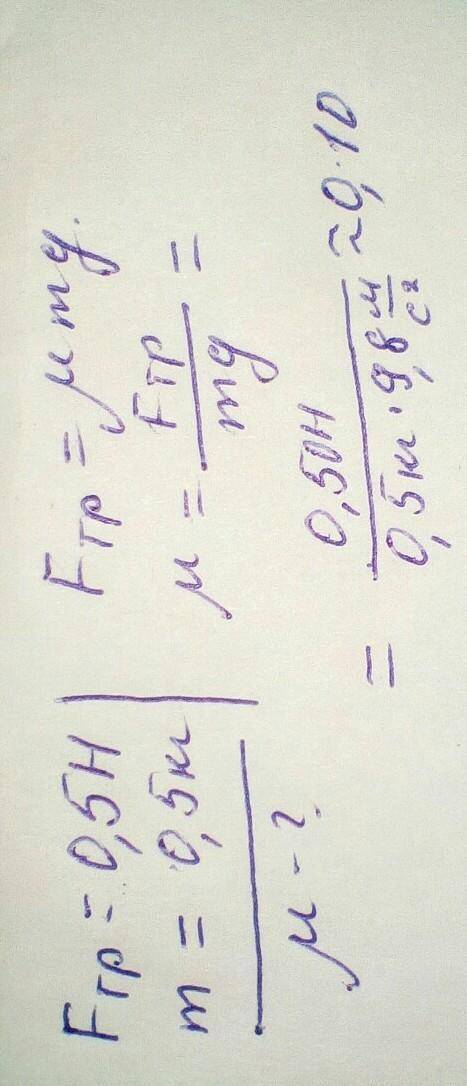 Fтр = 0,5Н
m = 0,5кг
μ - ?
Fтр = μmg.
μ = Fтр/mg =
= 0,50Н/0,5кг·9,8 м/с² ≈ 0,10